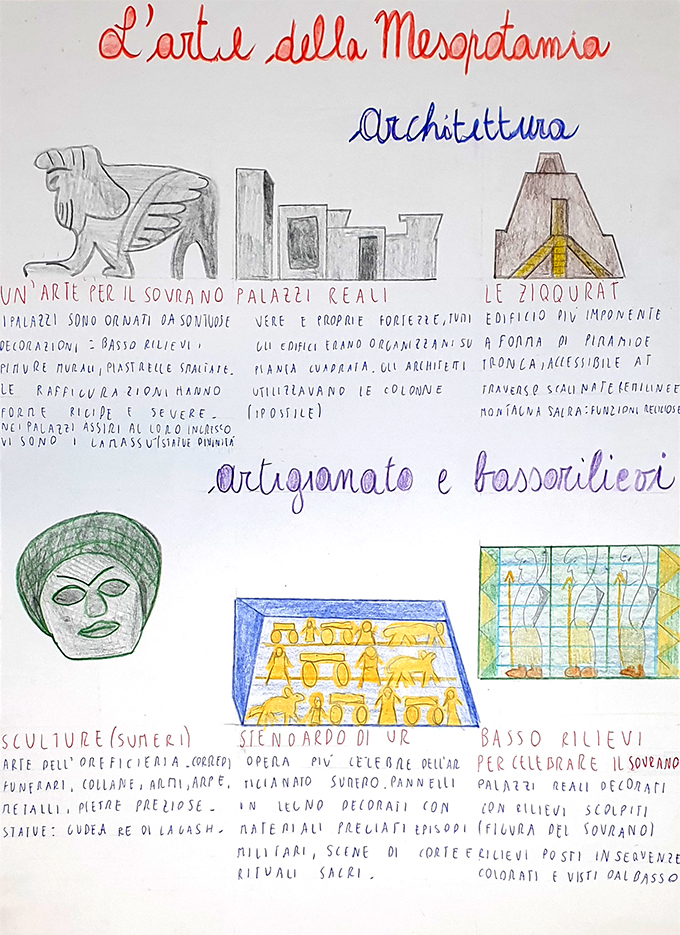 L'arte della Mesopotamia
Architettura
UN'ARTE PER IL SOVRANO
I PALAZZI SONO ORNATI DA SONTUOSE
DECORAZIONI: BASSO RILIEVI
PITTURE MURALI, PIASTRELLE SMALTATE.
LE RAFFIGURAZIONI HANNO
FORME RIGIDE E SEVERE.
NEI PALAZZI ASSIRI AL LORO INGRESSO
VI SONO I LAMASSU' (STATUE DIVINITÀ
PALAZZI REALI
VERE E PROPRIE FORTEZZE, TUTTI
GLI EDIFICI ERANO ORGANIZZANI SU
PIANTA QUADRATA. GLI ARCHITETTI
UTILIZZAVANO LE COLONNE
(IPOSTILE)
LE ZIQQURAT
EDIFICIO PIU' IMPONENTE
A FORMA DI PIRAMIDE
TRONCA, ACCESSIBILE AT
TRAVERSO SCALINATE RETTILINEE
MONTAGNA SACRA: FUNZIONI RELIGIOSE
artigianato e bassorilievi
SCULTURE (SUMERI)
ARTE DELL'OREFICIERIA. CORREDI
FUNERARI, COLLANE, ARMI, ARPE,
METALLI, PIETRE PREZIOSE.
STATUE: GUDEA RE DI LAGASH.
STENDARDO DI UR
OPERA PIU' CELEBRE DELL'AR
TIGIANATO SUMERO. PANNELLI
IN LEGNO DECORATI CON
MATERIALI PREGIATI EPISODI
MILITARI, SCENE DI CORTE E
RITUALI SACRI.
BASSO RILIEVI
PER CELEBRARE IL SOVRANO
PALAZZI REALI DECORATI
CON RILIEVI SCOLPITI
(FIGURA DEL SOVRANO)
RILIEVI POSTI IN SEQUENZE
COLORATI E VISTI DAL BASSO